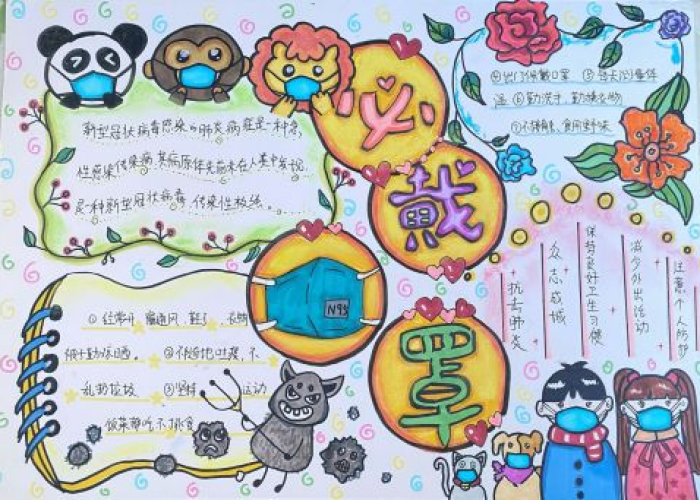 新型冠状病毒感染的肺炎病症是一种急
性感染传染病,其病原体先前未在人类中发现
是一种新型冠状病毒,传染性极强。
必
戴
罩
④出门佩戴口罩
⑥勤洗手,勤换衣物
食用野味
N95
抗击肺炎
众志成城
保持良好卫生习惯
减少外出活动
注意个人防护
①经常开窗通风,鞋子
被子勤晾晒。②不随地吐痰,不
乱扔垃圾 ③坚持 运动
饭菜静吃不挑食